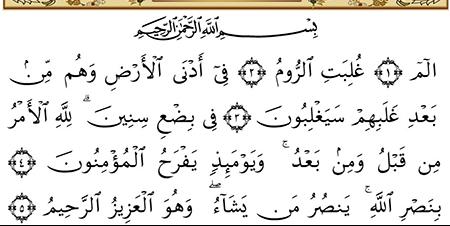 بِسْمِ ٱللَّهِ ٱلرَّحْمَٰنِ ٱلرَّحِيمِ
الٓمٓ ﴿١﴾ غُلِبَتِ ٱلرُّومُ ﴿٢﴾ فِىٓ أَدْنَى ٱلْأَرْضِ وَهُم مِّنۢ
بَعْدِ غَلَبِهِمْ سَيَغْلِبُونَ ﴿٣﴾ فِى بِضْعِ سِنِينَ ۗ لِلَّهِ ٱلْأَمْرُ
مِن قَبْلُ وَمِنۢ بَعْدُ ۚ وَيَوْمَئِذٍ يَفْرَحُ ٱلْمُؤْمِنُونَ ﴿٤﴾
بِنَصْرِ ٱللَّهِ ۚ يَنصُرُ مَن يَشَآءُ ۖ وَهُوَ ٱلْعَزِيزُ ٱلرَّحِيمُ ﴿٥﴾